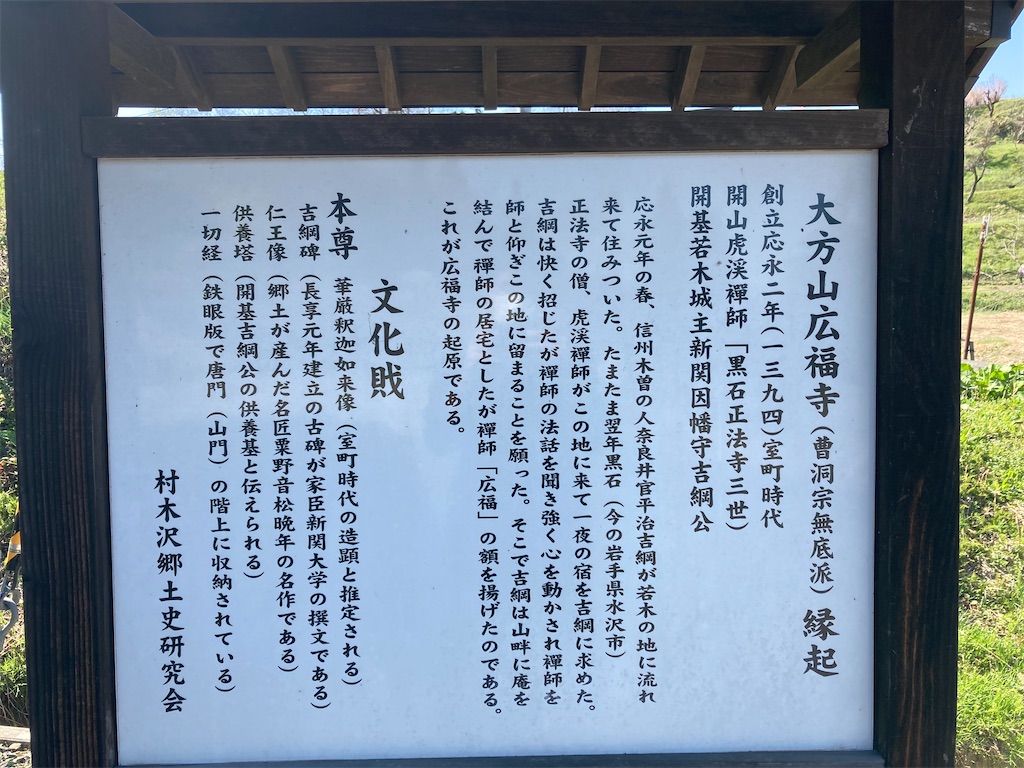 大方山広福寺（曹洞宗無底派）縁起
創立応永二年（一三九四）室町時代
開山虎渓禪師「黒石正法寺三世」
開基若木城主新関因幡守吉綱公
応永元年の春、信州木曽の人奈良井官平治吉綱が若木の地に流れ
来て住みついた。たまたま翌年黒石（今の岩手県水沢市）
正法寺の僧、虎渓禪師がこの地に来て一夜の宿を吉綱に求めた。
吉綱は快く招じたが禪師の法話を聞き強く心を動かされ禪師を
師と仰ぎこの地に留まることを願った。そこで吉綱は山畔に庵を
結んで禪師の居宅としたが禪師「広福」の額を揚げたのである。
これが広福寺の起原である。
文化戝
本尊　華厳釈迦如来像（室町時代の造顕と推定される）
吉綱碑（長享元年建立の古碑が家臣新関大学の撰文である）
仁王像（郷土が産んだ名匠粟野音松晩年の名作である）
供養塔（開基吉綱公の供養基と伝えられる）
一切経（鉄眼版で唐門（山門）の階上に収納されている）
村木沢郷土史研究会